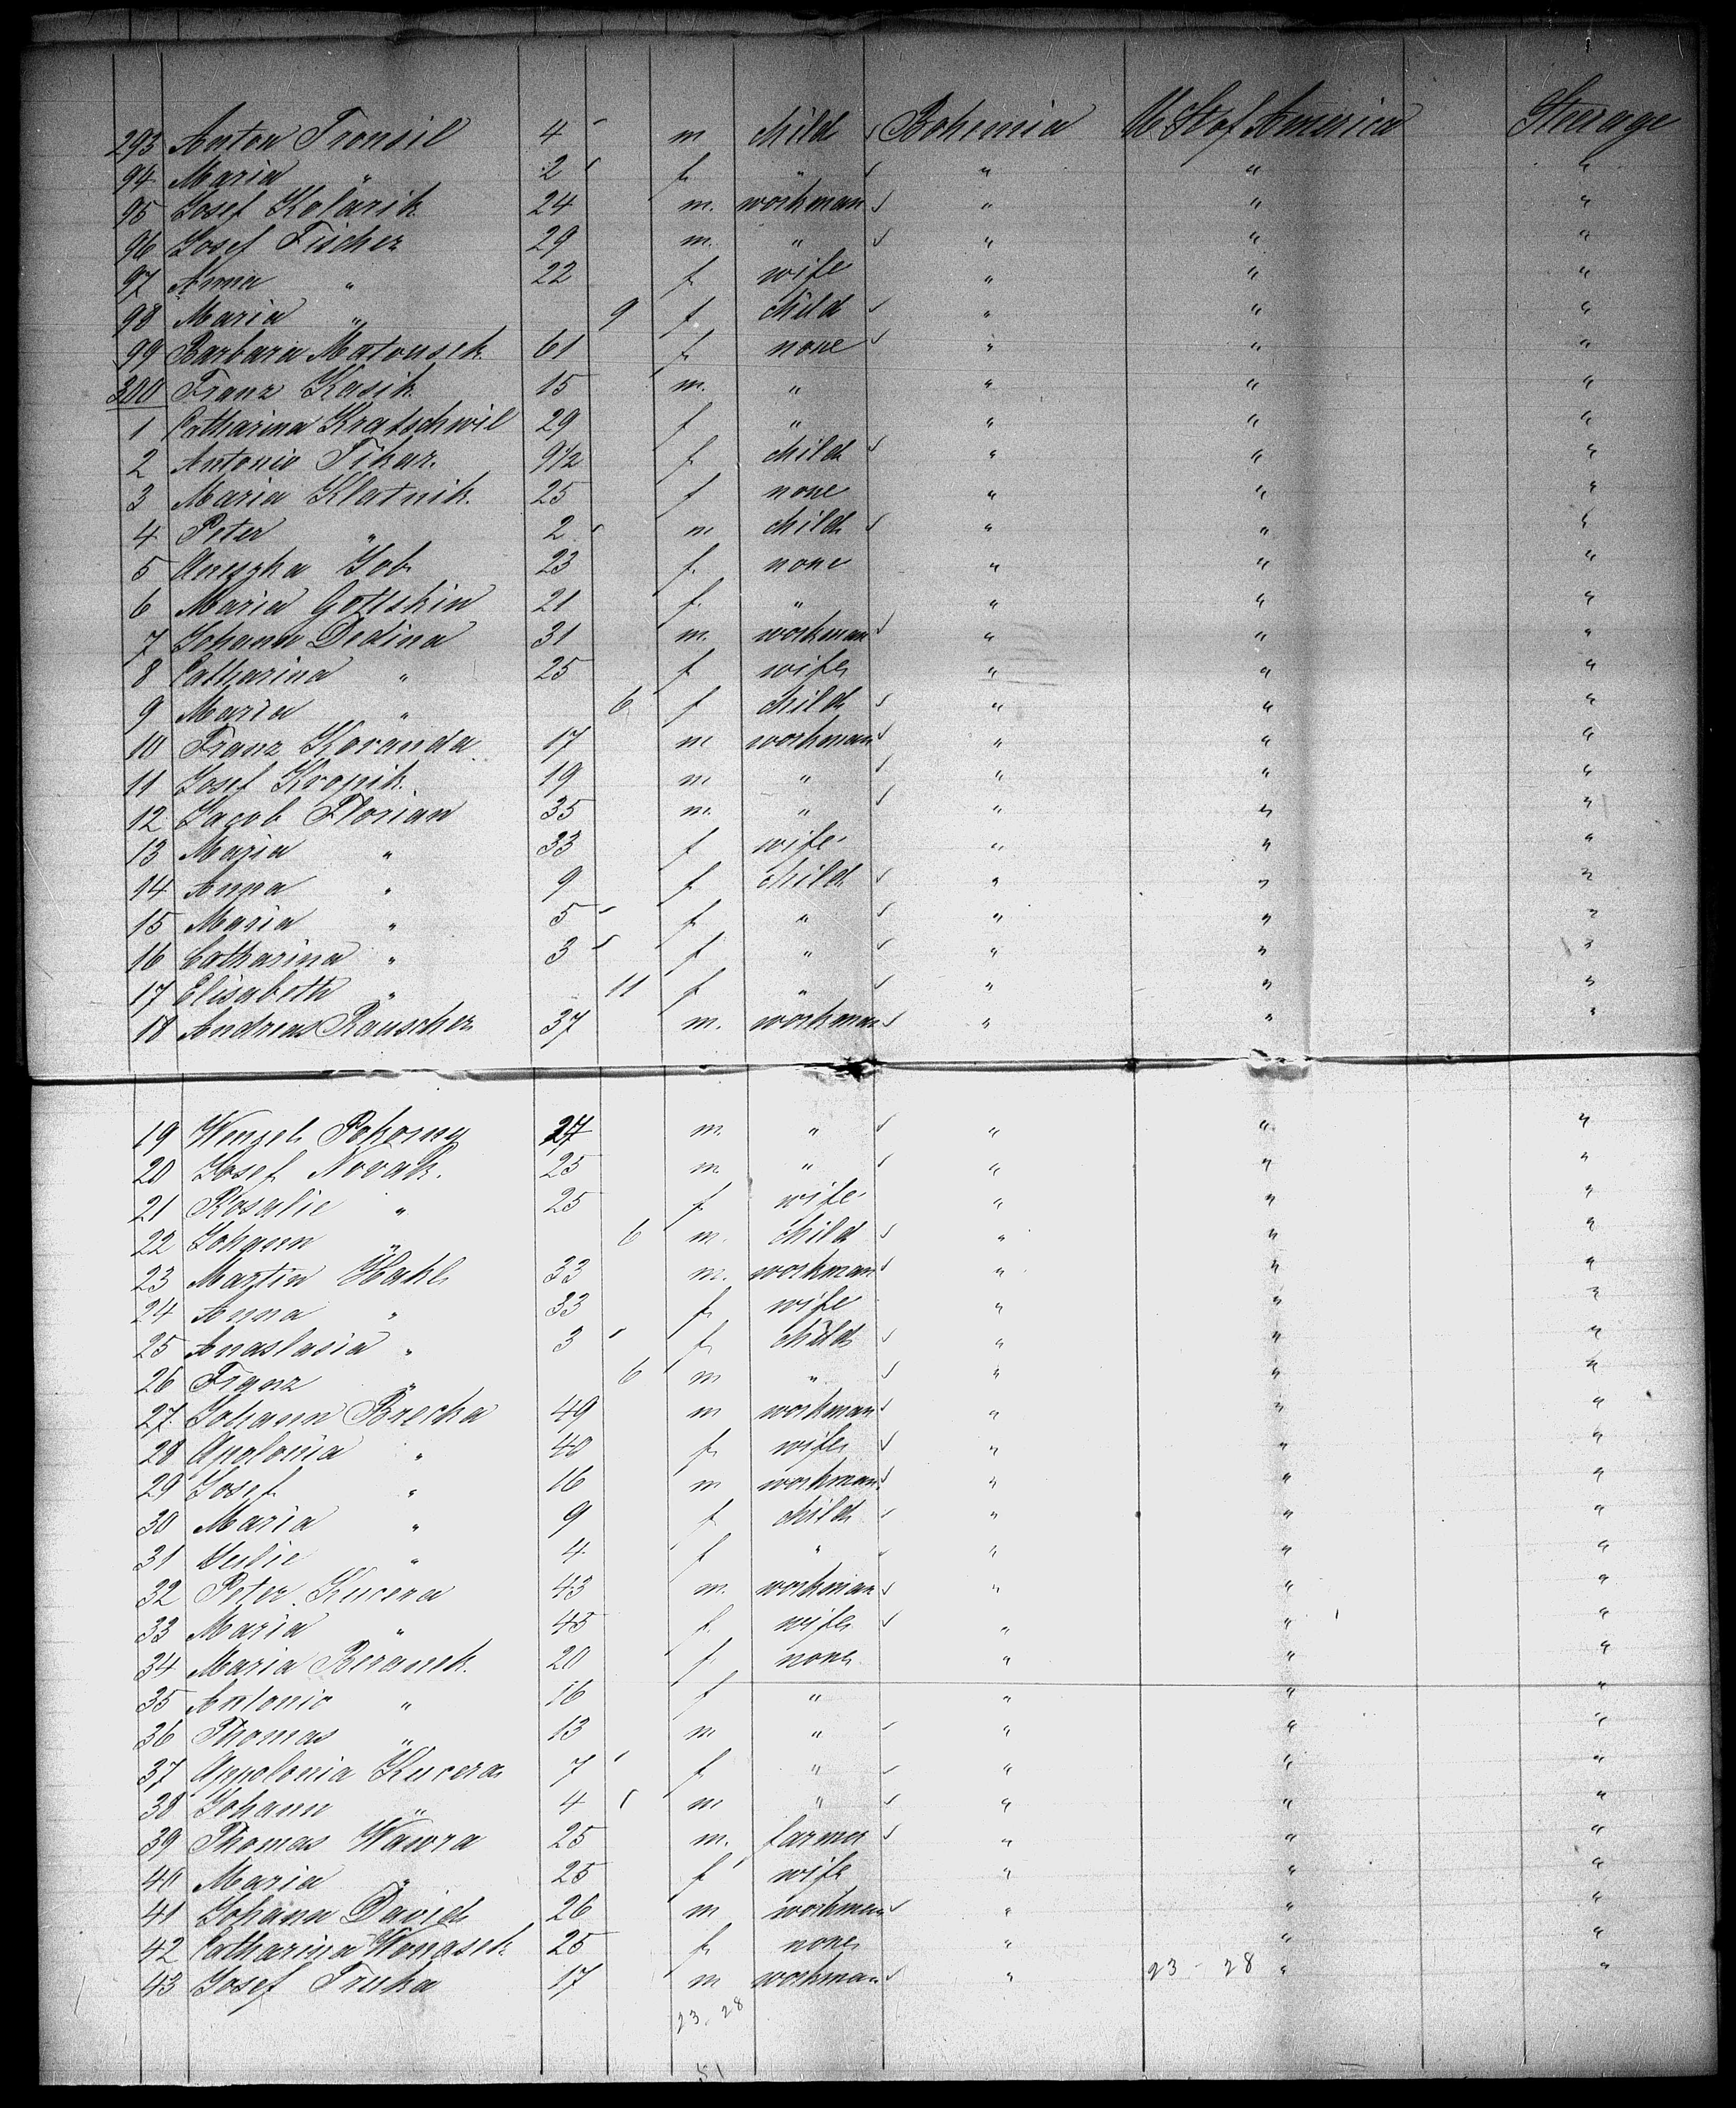 293 Anton Tronsil 4 m child Bohemia U St of America Steerage
94 Maria " 2 f " " " "
95 Josef Kolarik 24 m. workman " " "
96 Josef Fischer 29 m. " " " "
97 Anna " 22 f wife " " "
98 Maria " 9 f child " " "
99 Barbara Matousek 61 f none " " "
300 Franz Kasik 15 m. " " " "
1 Catharina Kratschwil 29 f " " " "
2 Antonie Tihar. 9 1/2 f child " " "
3 Maria Klatnik. 25 f none " " "
4 Peter " 2 m child " " "
5 Aneszka Job 23 f. none " " "
6 Maria Gottskin 21 f. " " " "
7 Johann Dedina 31 m. workman " " "
8 Catharina " 25 f wife " " "
9 Maria " 6 f child " " "
10 Franz Koranda 17 m workman " " "
11 Josef Kropik. 19 m " " " "
12 Jacob Florian 35 m. " " " "
13 Maria " 33 f wife " " "
14 Anna " 9 f child " " "
15 Maria " 5 f " " " "
16 Catharina " 3 f " " " "
17 Elisabeth " 11 f " " " "
18 Andreas Rauscher 37 m. workman " " "
19 Wenzel Pokorny 27 m. " " " "
20 Josef Novak. 25 m. " " " "
21 Rosalie " 25 f wife " " "
22 Johann " 6 m. child " " "
23 Martin Hakl 33 m. workman " " "
24 Anna " 33 f wife " " "
25 Anastasia " 3 f child " " "
26 Franz " 6 m " " " "
27 Johann Brecka 49 m workman " " "
28 Apolonia " 40 f wife " " "
29 Josef " 16 m workman " " "
30 Maria " 9 f child " " "
31 Julie " 4 f " " " "
32 Peter Kucera 43 m. workman " " "
33 Maria " 45 f. wife " " "
34 Maria Beranek. 20 f none " " "
35 Antonie " 16 f " " " "
36 Thomas " 13 m " " " "
37 Appolonia Kucera 7 f " " " "
38 Johann " 4 m " " " "
39 Thomas Wawra 25 m. farmer " " "
40 Maria " 25 f wife " " "
41 Johann David 26 m workman " " "
42 Catharina Wonasek 25 f none " " "
43 Josef Truka 17 m workman " 23 - 28 " "
23. 28
51